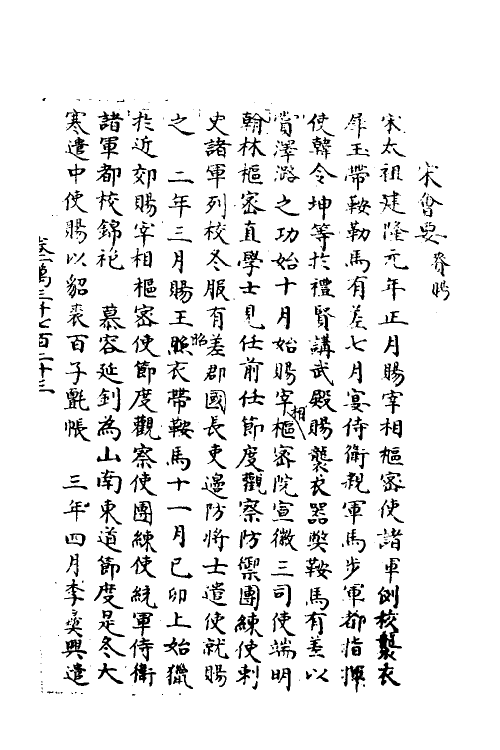 宋會要 眷賜
宋太祖建隆元年正月賜宰相樞密使諸軍列校襲衣
犀玉帶鞍勒馬有差七月宴侍衛親軍馬步軍都指揮
使韓令坤等於禮賢講武殿賜襲衣器獘鞍馬有差以
賞澤潞之功始十月始賜宰相樞密院宣徽三司使端明
翰林樞密直學士見任前任節度觀察防禦團練使刺
史諸軍列校冬服有差郡國長吏邊防將士遣使就賜
之　二年三月賜王照衣帶鞍馬十一月己卯上始獵
於近郊賜宰相樞密使節度觀察使團練使統軍侍衛
諸軍都校錦袍　慕容延釗為山南東道節度是冬大
寒遣中使賜以貂裘百子氈帳　三年四月李彝興遣
卷一萬三千七百二十三